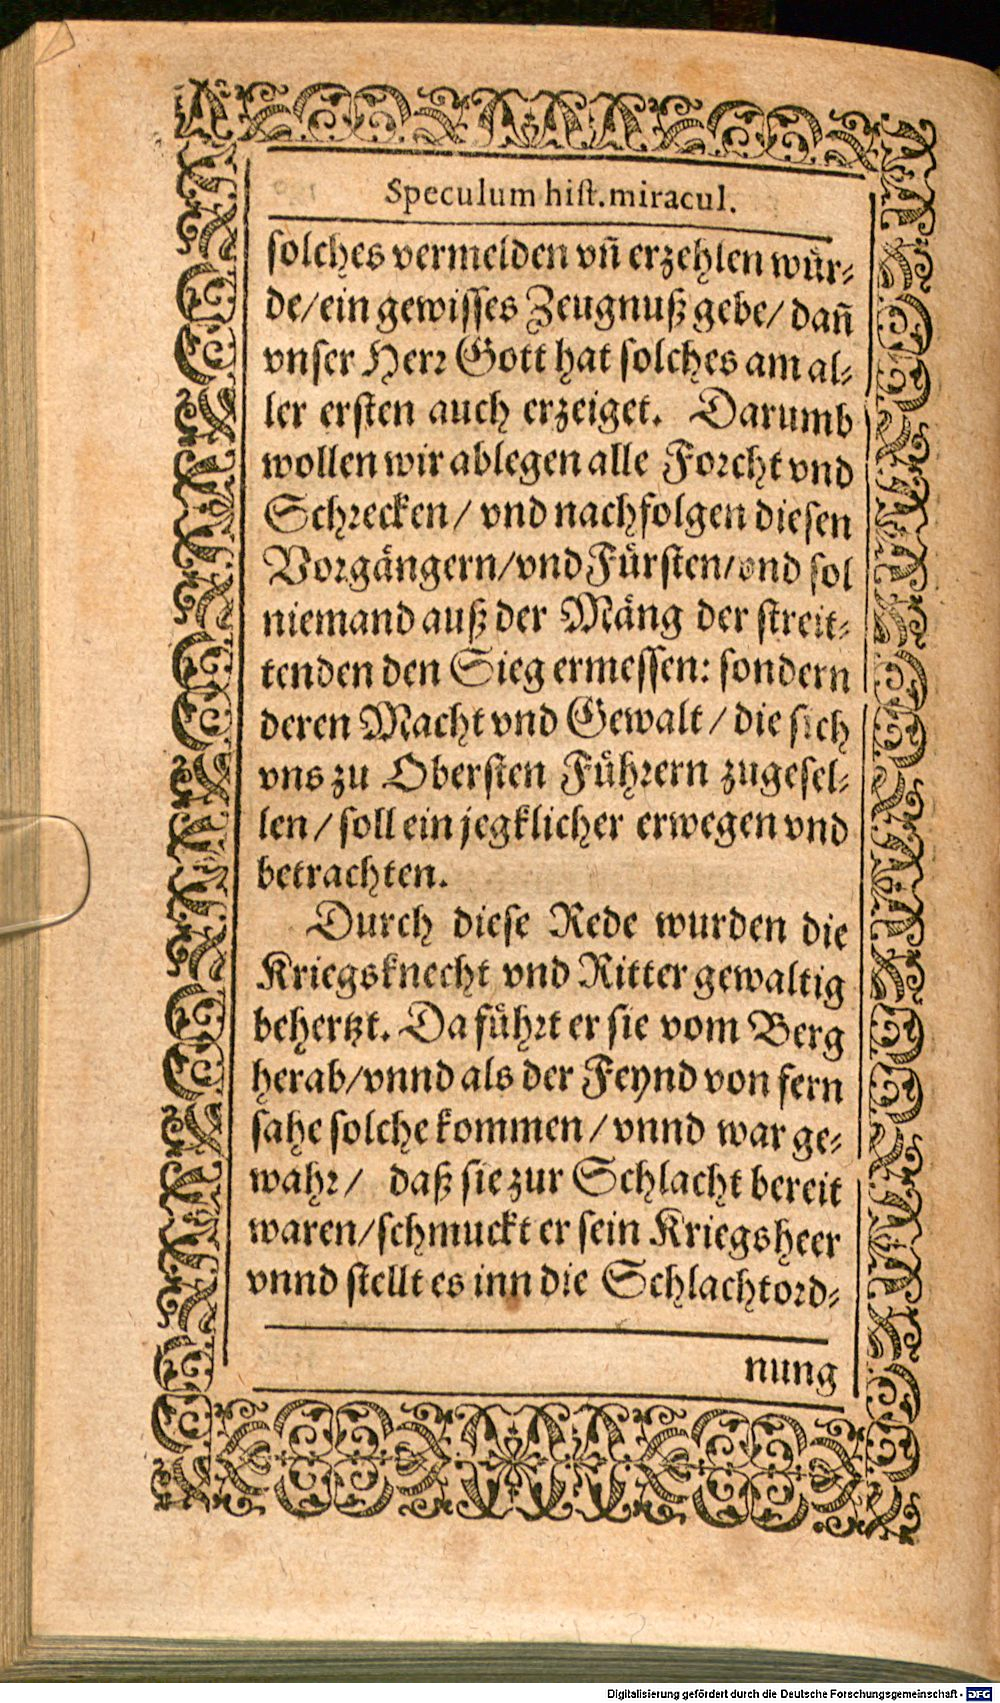 Speculum hist. miracul.
solches vermelden vñ erzehlen wuͤr-
de/ ein gewisses Zeugnuß gebe/ dañ
vnser Herr Gott hat solches am al-
ler ersten auch erzeiget. Darumb
wollen wir ablegen alle Forcht vnd
Schrecken/ vnd nachfolgen diesen
Vorgaͤngern/ vnd Fuͤrsten/ vnd sol
niemand auß der Maͤng der streit-
tenden den Sieg ermessen: sondern
deren Macht vnd Gewalt/ die sich
vns zu Obersten Fuͤhrern zugesel-
len/ soll ein jegklicher erwegen vnd
betrachten.
Durch diese Rede wurden die
Kriegsknecht vnd Ritter gewaltig
behertzt. Da fuͤhrt er sie vom Berg
herab/ vnnd als der Feynd von fern
sahe solche kommen/ vnnd war ge-
wahr/ daß sie zur Schlacht bereit
waren/ schmuckt er sein Kriegsheer
vnnd stellt es inn die Schlachtord-
nung
Digitalisierung gefördert durch die Deutsche Forschungsgemeinschaft - DFG